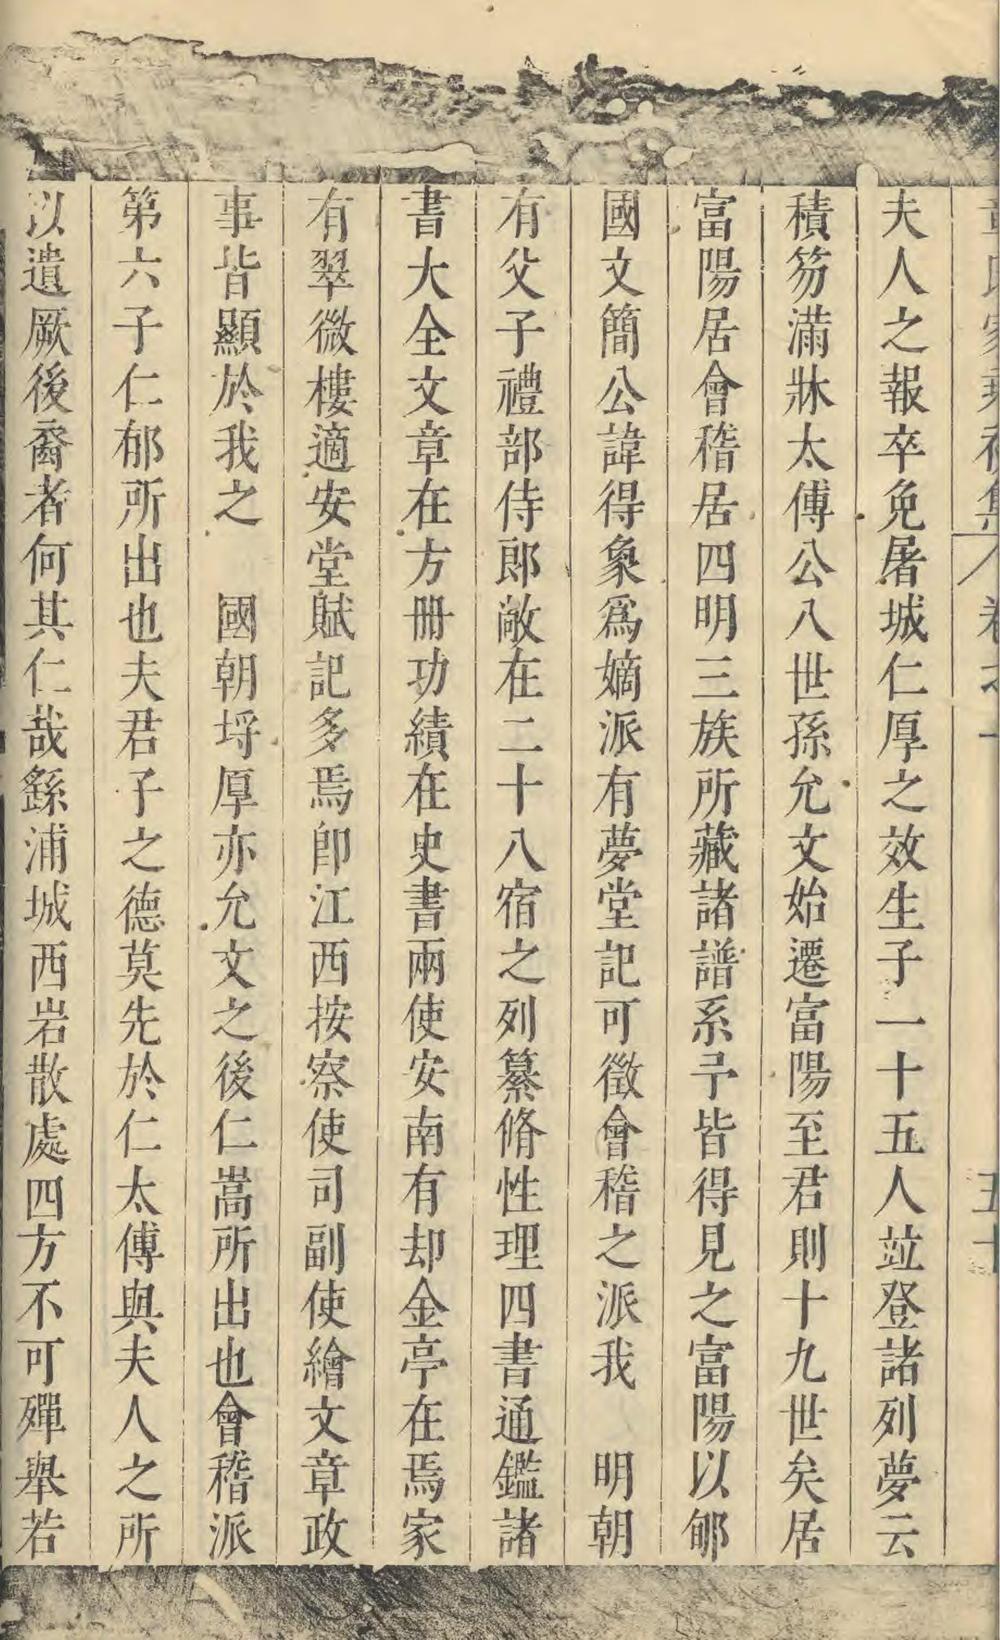 夫人之報卒免屠城仁厚之效生子一十五人竝登諸列夢云
積笏滿牀太傅公八世孫允文始遷富陽至君則十九世矣居
富陽居會稽居四明三族所藏諸譜系予皆得見之富陽以郇
國文簡公諱得象爲嫡派有夢堂記可徵會稽之派我　明朝
有父子禮部侍郎敞在二十八宿之列纂脩性理四書通鑑諸
書大全文章在方冊功績在史書兩使安南有却金亭在焉家
有翠微樓適安堂賦記多焉卽江西按察使司副使繪文章政
事皆顯於我之　國朝埓厚亦允文之後仁嵩所出也會稽派
第六子仁郁所出也夫君子之德莫先於仁太傅與夫人之所
以遺厥後裔者何其仁哉繇浦城西岩散處四方不可殫舉若